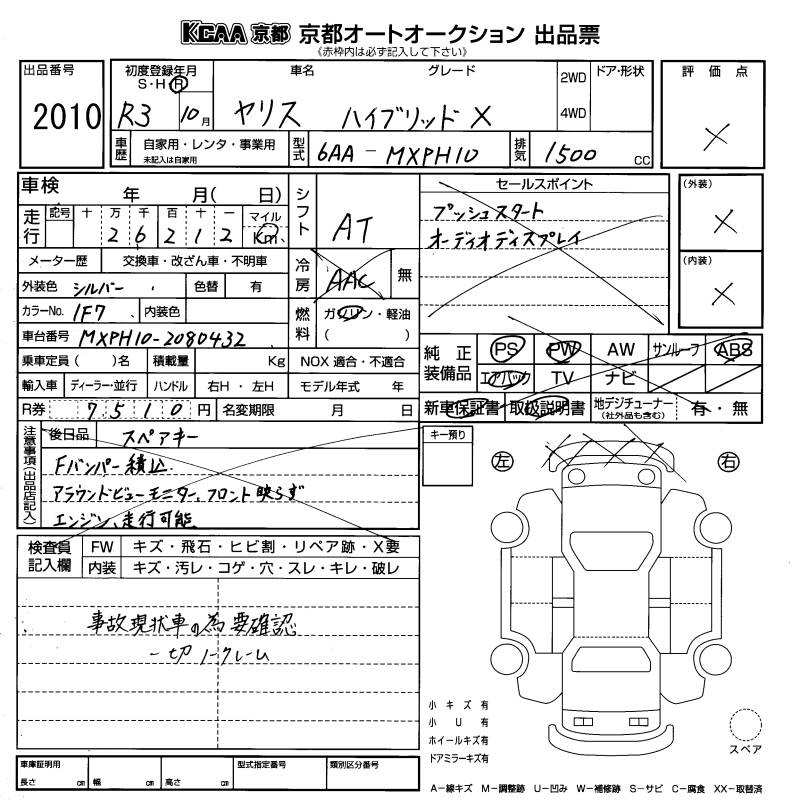 KCAA 京都 京都オートオークション 出品票
《赤枠内は必ず記入して下さい》
出品番号
2010
初度登録年月
S・H・R
R3 10月
車名
ヤリス
グレード
ハイブリッド X
2WD
4WD
ドア・形状
評価点
×
車歴
自家用・レンタ・事業用
未記入は自家用
型式
6AA-MXPH10
排気
1500 cc
車検 年 月( 日)
シフト
AT
走行
記号 十 万 千 百 十 一 マイル
2 6 2 1 2 Km
メーター歴 交換車・改ざん車・不明車
冷房
AAC 無
外装色 シルバー 色替 有
カラーNo. 1F7 内装色
燃料
ガソリン・軽油
( )
車台番号 MXPH10-2080432
乗車定員 ( )名 積載量 Kg NOX 適合・不適合
輸入車 ディーラー・並行 ハンドル 右H・左H モデル年式 年
R券 7510円 名変期限 月 日
セールスポイント
プッシュスタート
オーディオディスプレイ
(外装)
×
(内装)
×
純正装備品
PS PW AW サンルーフ ABS
エアバック TV ナビ
新車保証書 取扱説明書 地デジチューナー(社外品も含む) 有・無
注意事項(出品店記入)
後日品 スペアキー
Fバンパー積込
アラウンドビューモニター、フロント映らず
エンジン、走行可能
キー預り
左
右
検査員記入欄
FW キズ・飛石・ヒビ割・リペア跡・X要
内装 キズ・汚レ・コゲ・穴・スレ・キレ・破レ
事故現状車の為要確認
一切ノークレーム
小キズ有
小U有
ホイールキズ有
ドアミラーキズ有
スペア
車庫証明用
長さ cm 幅 cm 高さ cm
型式指定番号
類別区分番号
A−線キズ M−調整跡 U−凹み W−補修跡 S−サビ C−腐食 XX−取替済